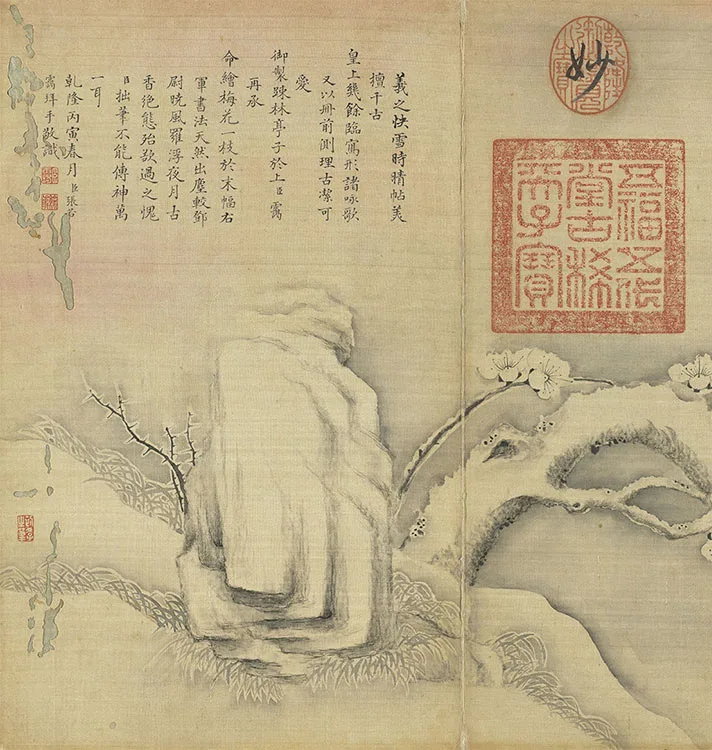 妙
乾隆御覽之寶
五福五代堂古稀天子寶
羲之快雪時晴帖美
擅千古
皇上幾餘臨寫形諸咏歌
又以冊前側理古潔可
愛
御製踈林亭子於上臣靄
再承
命繪梅花一枝於末幅右
軍書法天然出塵較鄧
尉曉風羅浮夜月古
香絕態殆欲過之愧
臣拙筆不能傳神萬
一耳
乾隆丙寅春月臣張若
靄拜手敬識